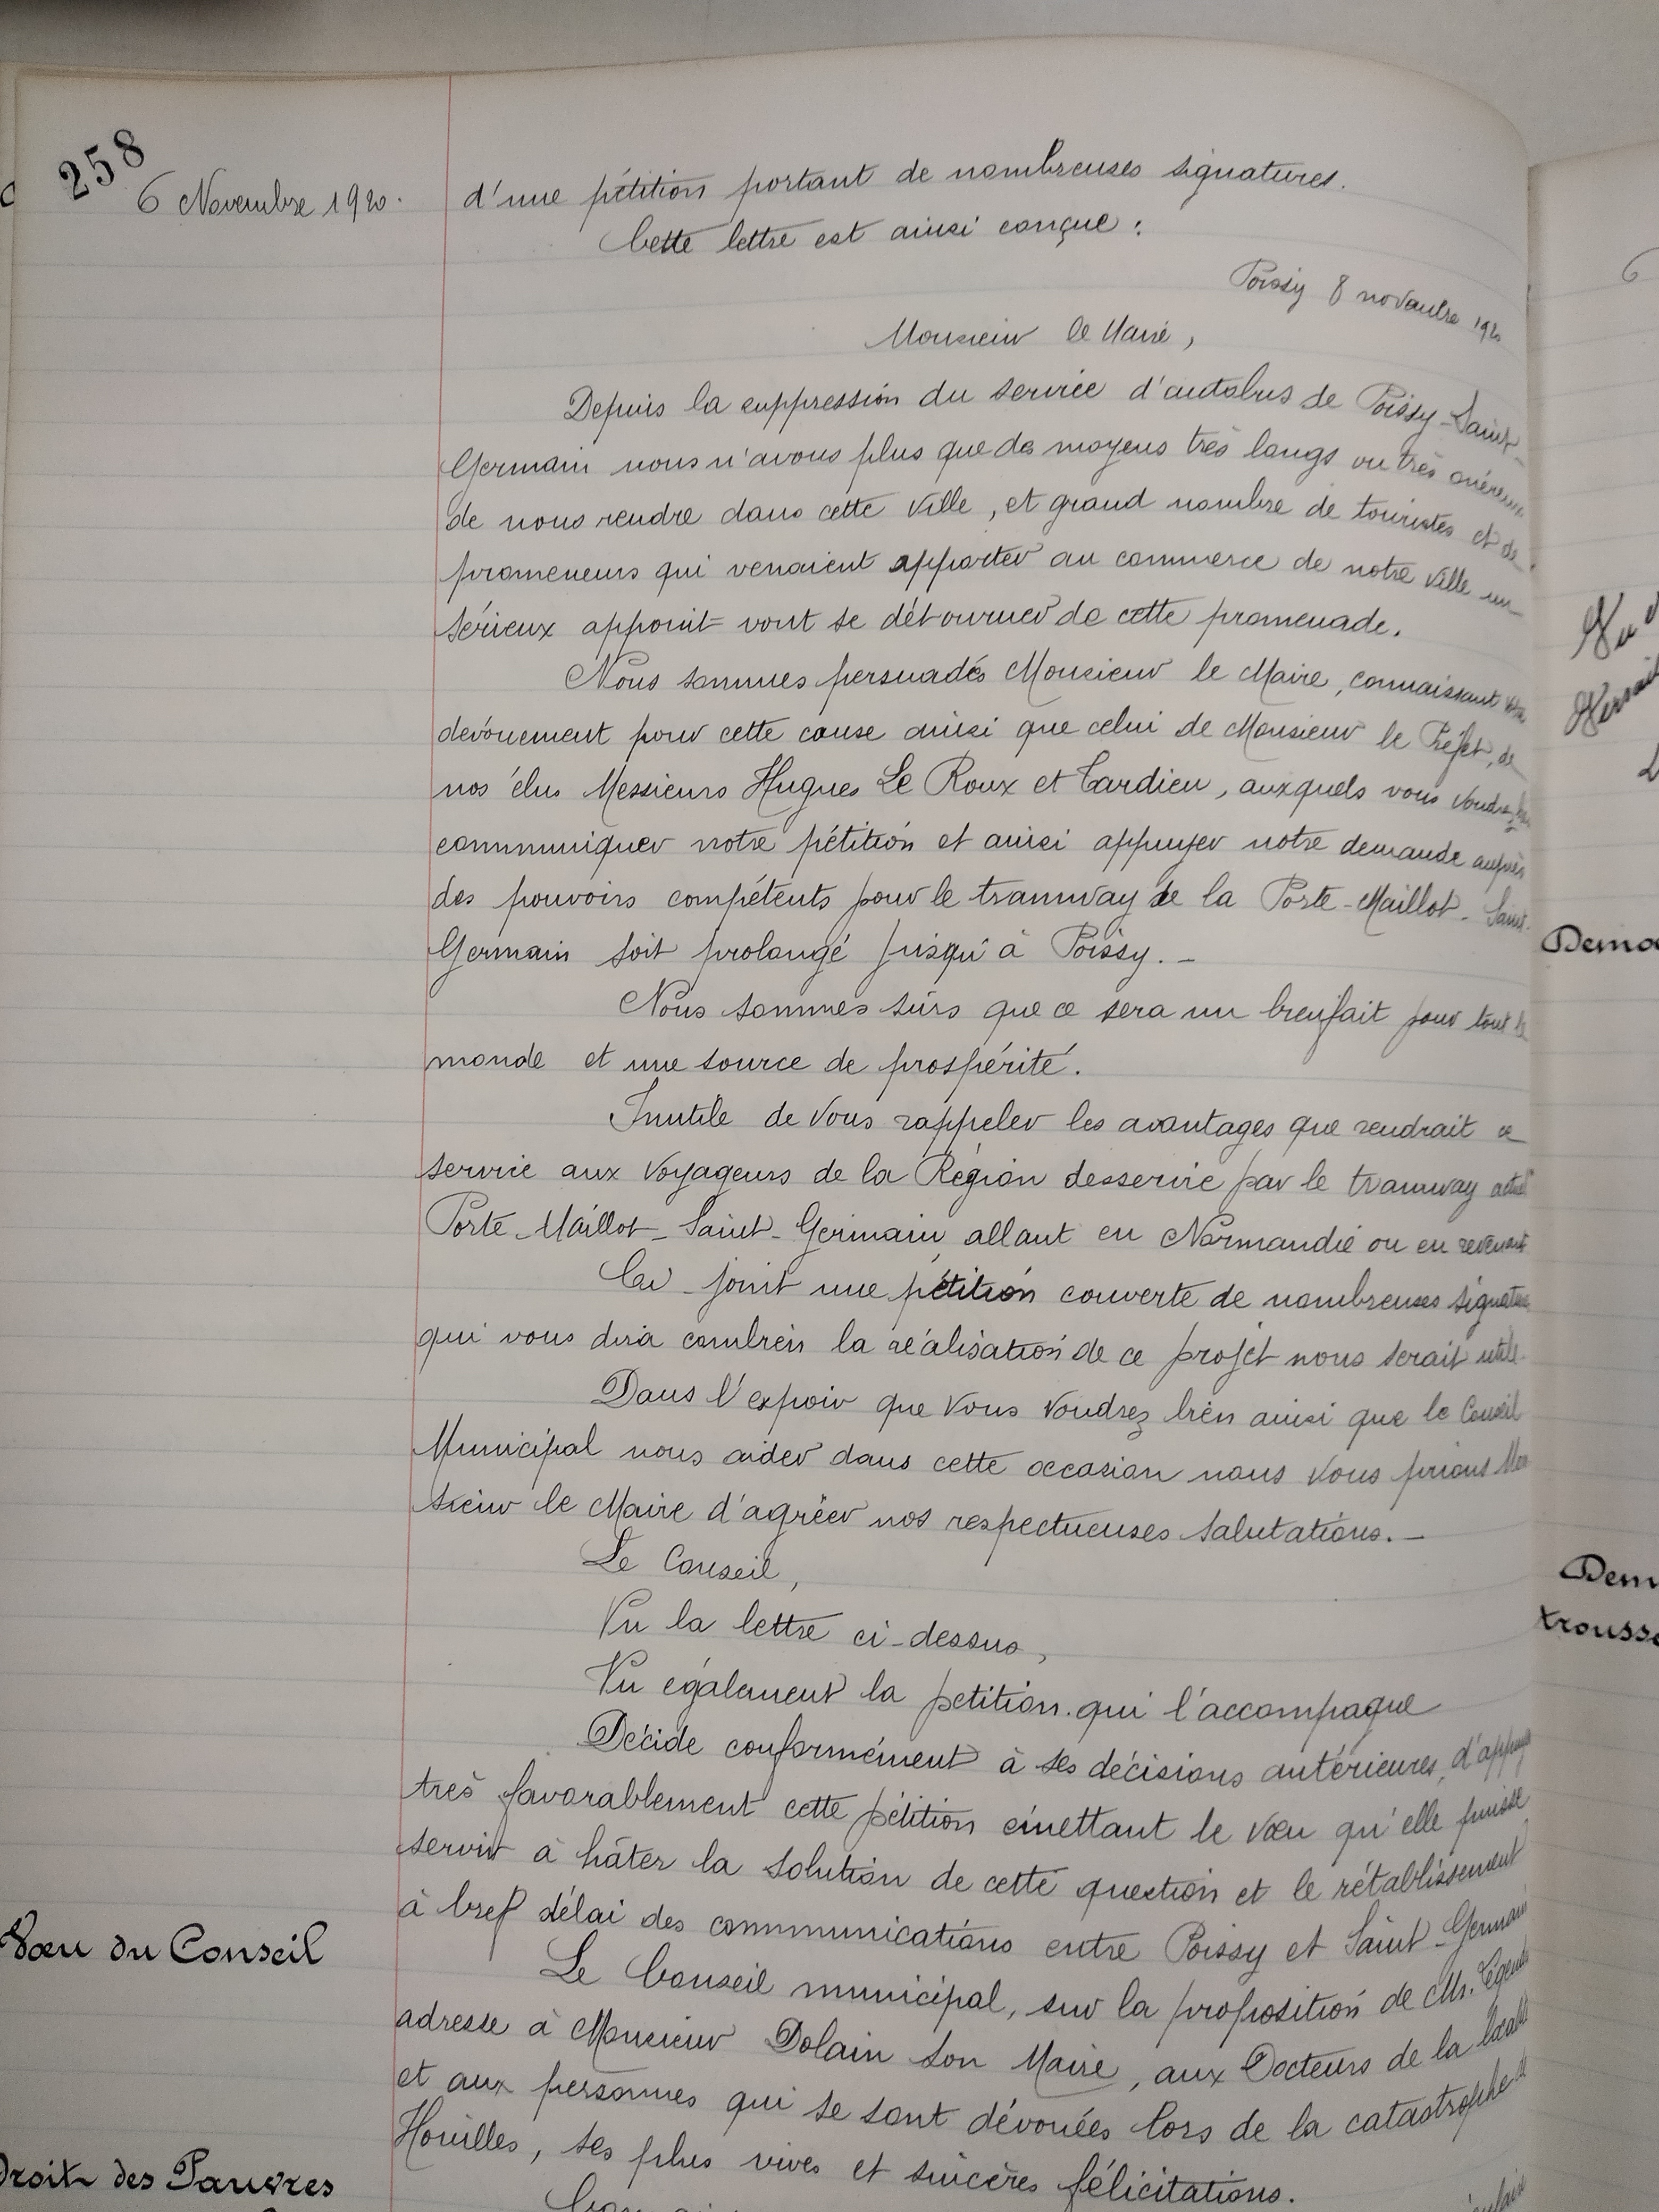 258
6 Novembre 1920.
d'une pétition portant de nombreuses signatures.
Cette lettre est ainsi conçue :
Poissy 8 novembre 1920
Monsieur le Maire,
Depuis la suppression du service d'autobus de Poissy-Saint-
Germain nous n'avons plus que des moyens très longs ou très onéreux
de nous rendre dans cette ville, et grand nombre de touristes et de
promeneurs qui venaient apporter au commerce de notre ville un
sérieux appoint vont se détourner de cette promenade.
Nous sommes persuadés Monsieur le Maire, connaissant votre
dévouement pour cette cause ainsi que celui de Monsieur le Préfet, de
nos élus Messieurs Hugues Le Roux et Tardieu, auxquels vous voudrez bien
communiquer notre pétition et ainsi appuyer notre demande auprès
des pouvoirs compétents pour le tramway de la Porte-Maillot-Saint-
Germain soit prolongé jusqu'à Poissy. -
Nous sommes sûrs que ce sera un bienfait pour tout le
monde et une source de prospérité.
Inutile de vous rappeler les avantages que rendrait ce
service aux voyageurs de la Région desservie par le tramway actuel
Porte-Maillot-Saint-Germain allant en Normandie ou en revenant
Ci-joint une pétition couverte de nombreuses signatures
qui vous dira combien la réalisation de ce projet nous serait utile.
Dans l'espoir que vous voudrez bien ainsi que le Conseil
Municipal nous aider dans cette occasion nous vous prions Mon
sieur le Maire d'agréer nos respectueuses salutations. -
Le Conseil,
Vu la lettre ci-dessus,
Vu également la petition qui l'accompagne
Décide conformément à ses décisions antérieures, d'appuyer
très favorablement cette pétition émettant le vœu qu'elle puisse
servir à hâter la solution de cette question et le rétablissement
à bref délai des communications entre Poissy et Saint-Germain
Vœu du Conseil
Le Conseil municipal, sur la proposition de Mr.
adresse à Monsieur Dolain son Maire, aux Docteurs de la localité
et aux personnes qui se sont dévouées lors de la catastrophe de
Houilles, ses plus vives et sincères félicitations.
Droit des Pauvres
Demo
Dem
trousse